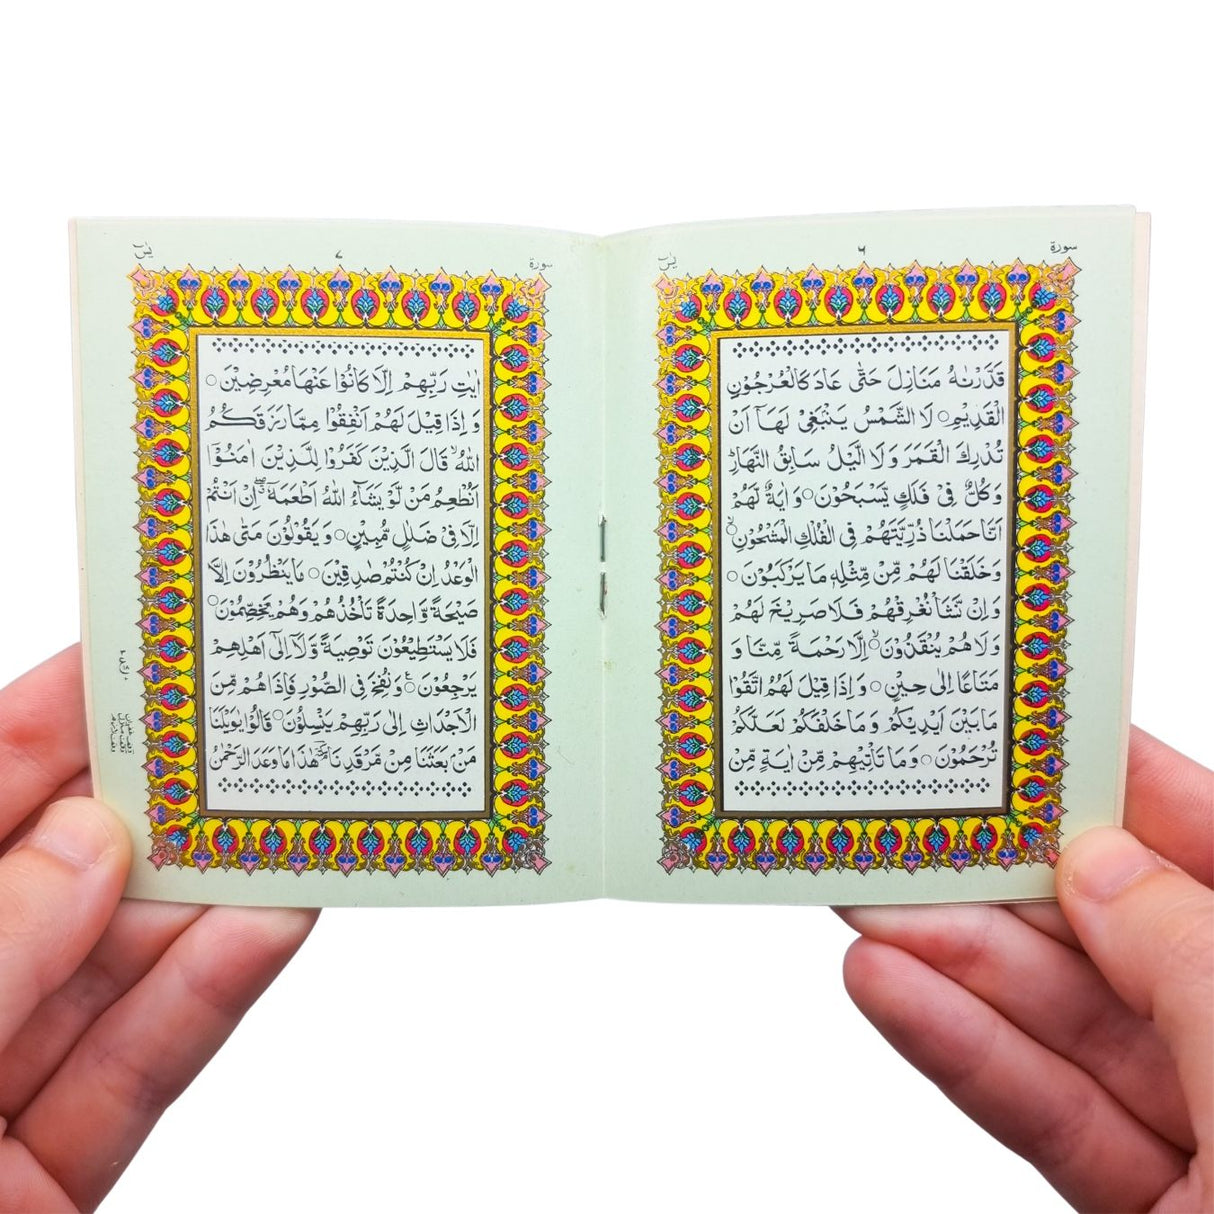 سورة ٦ يٰسٓ
قَدَّرْنٰهُ مَنَازِلَ حَتّٰى عَادَ كَالْعُرْجُوْنِ
الْقَدِيْمِ○ لَا الشَّمْسُ يَنْۢبَغِيْ لَهَاۤ اَنْ
تُدْرِكَ الْقَمَرَ وَلَا الَّيْلُ سَابِقُ النَّهَارِؕ
وَكُلٌّ فِيْ فَلَكٍ يَّسْبَحُوْنَ○ وَاٰيَةٌ لَّهُمْ
اَنَّا حَمَلْنَا ذُرِّيَّتَهُمْ فِي الْفُلْكِ الْمَشْحُوْنِ○ۙ
وَخَلَقْنَا لَهُمْ مِّنْ مِّثْلِهٖ مَا يَرْكَبُوْنَ○
وَاِنْ نَّشَاْ نُغْرِقْهُمْ فَلَا صَرِيْخَ لَهُمْ
وَلَا هُمْ يُنْقَذُوْنَ○ۙ اِلَّا رَحْمَةً مِّنَّا وَ
مَتَاعًا اِلٰى حِيْنٍ○ وَاِذَا قِيْلَ لَهُمُ اتَّقُوْا
مَا بَيْنَ اَيْدِيْكُمْ وَمَا خَلْفَكُمْ لَعَلَّكُمْ
تُرْحَمُوْنَ○ وَمَا تَاْتِيْهِمْ مِّنْ اٰيَةٍ مِّنْ
سورة ٧ يٰسٓ
اٰيٰتِ رَبِّهِمْ اِلَّا كَانُوْا عَنْهَا مُعْرِضِيْنَ○
وَاِذَا قِيْلَ لَهُمْ اَنْفِقُوْا مِمَّا رَزَقَكُمُ
اللّٰهُۙ قَالَ الَّذِيْنَ كَفَرُوْا لِلَّذِيْنَ اٰمَنُوْۤا
اَنُطْعِمُ مَنْ لَّوْ يَشَآءُ اللّٰهُ اَطْعَمَهٗۤۖ اِنْ اَنْتُمْ
اِلَّا فِيْ ضَلٰلٍ مُّبِيْنٍ○ وَيَقُوْلُوْنَ مَتٰى هٰذَا
الْوَعْدُ اِنْ كُنْتُمْ صٰدِقِيْنَ○ مَا يَنْظُرُوْنَ اِلَّا
صَيْحَةً وَّاحِدَةً تَاْخُذُهُمْ وَهُمْ يَخِصِّمُوْنَ○
فَلَا يَسْتَطِيْعُوْنَ تَوْصِيَةً وَّلَاۤ اِلٰٓى اَهْلِهِمْ
يَرْجِعُوْنَ○ۧ وَنُفِخَ فِي الصُّوْرِ فَاِذَا هُمْ مِّنَ
الْاَجْدَاثِ اِلٰى رَبِّهِمْ يَنْسِلُوْنَ○ قَالُوْا يٰوَيْلَنَا
مَنْۢ بَعَثَنَا مِنْ مَّرْقَدِنَا هٰذَا مَا وَعَدَ الرَّحْمٰنُ